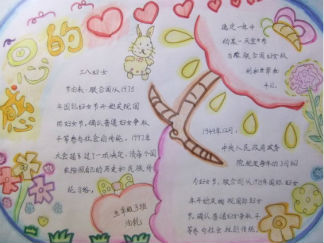 感恩的心
三八妇女
节由来：联合国从1975
年国际妇女节开始庆祝国
际妇女节，确认普通妇女争取
平等参与社会的传统。1997年
大会通过了一项决议，请每个国
家按照自己的历史和民族传
统习俗，
五年级3班
确定一年中
的某一天宣布
为联合国妇女权
利和世界和
平日。
1949年12月，
中央人民政府政务
院规定每年的3月8日
为妇女节。联合国从1975年国际妇女
年开始庆祝国际妇女
节，确认普通妇女争取平
等参与社会的传统。